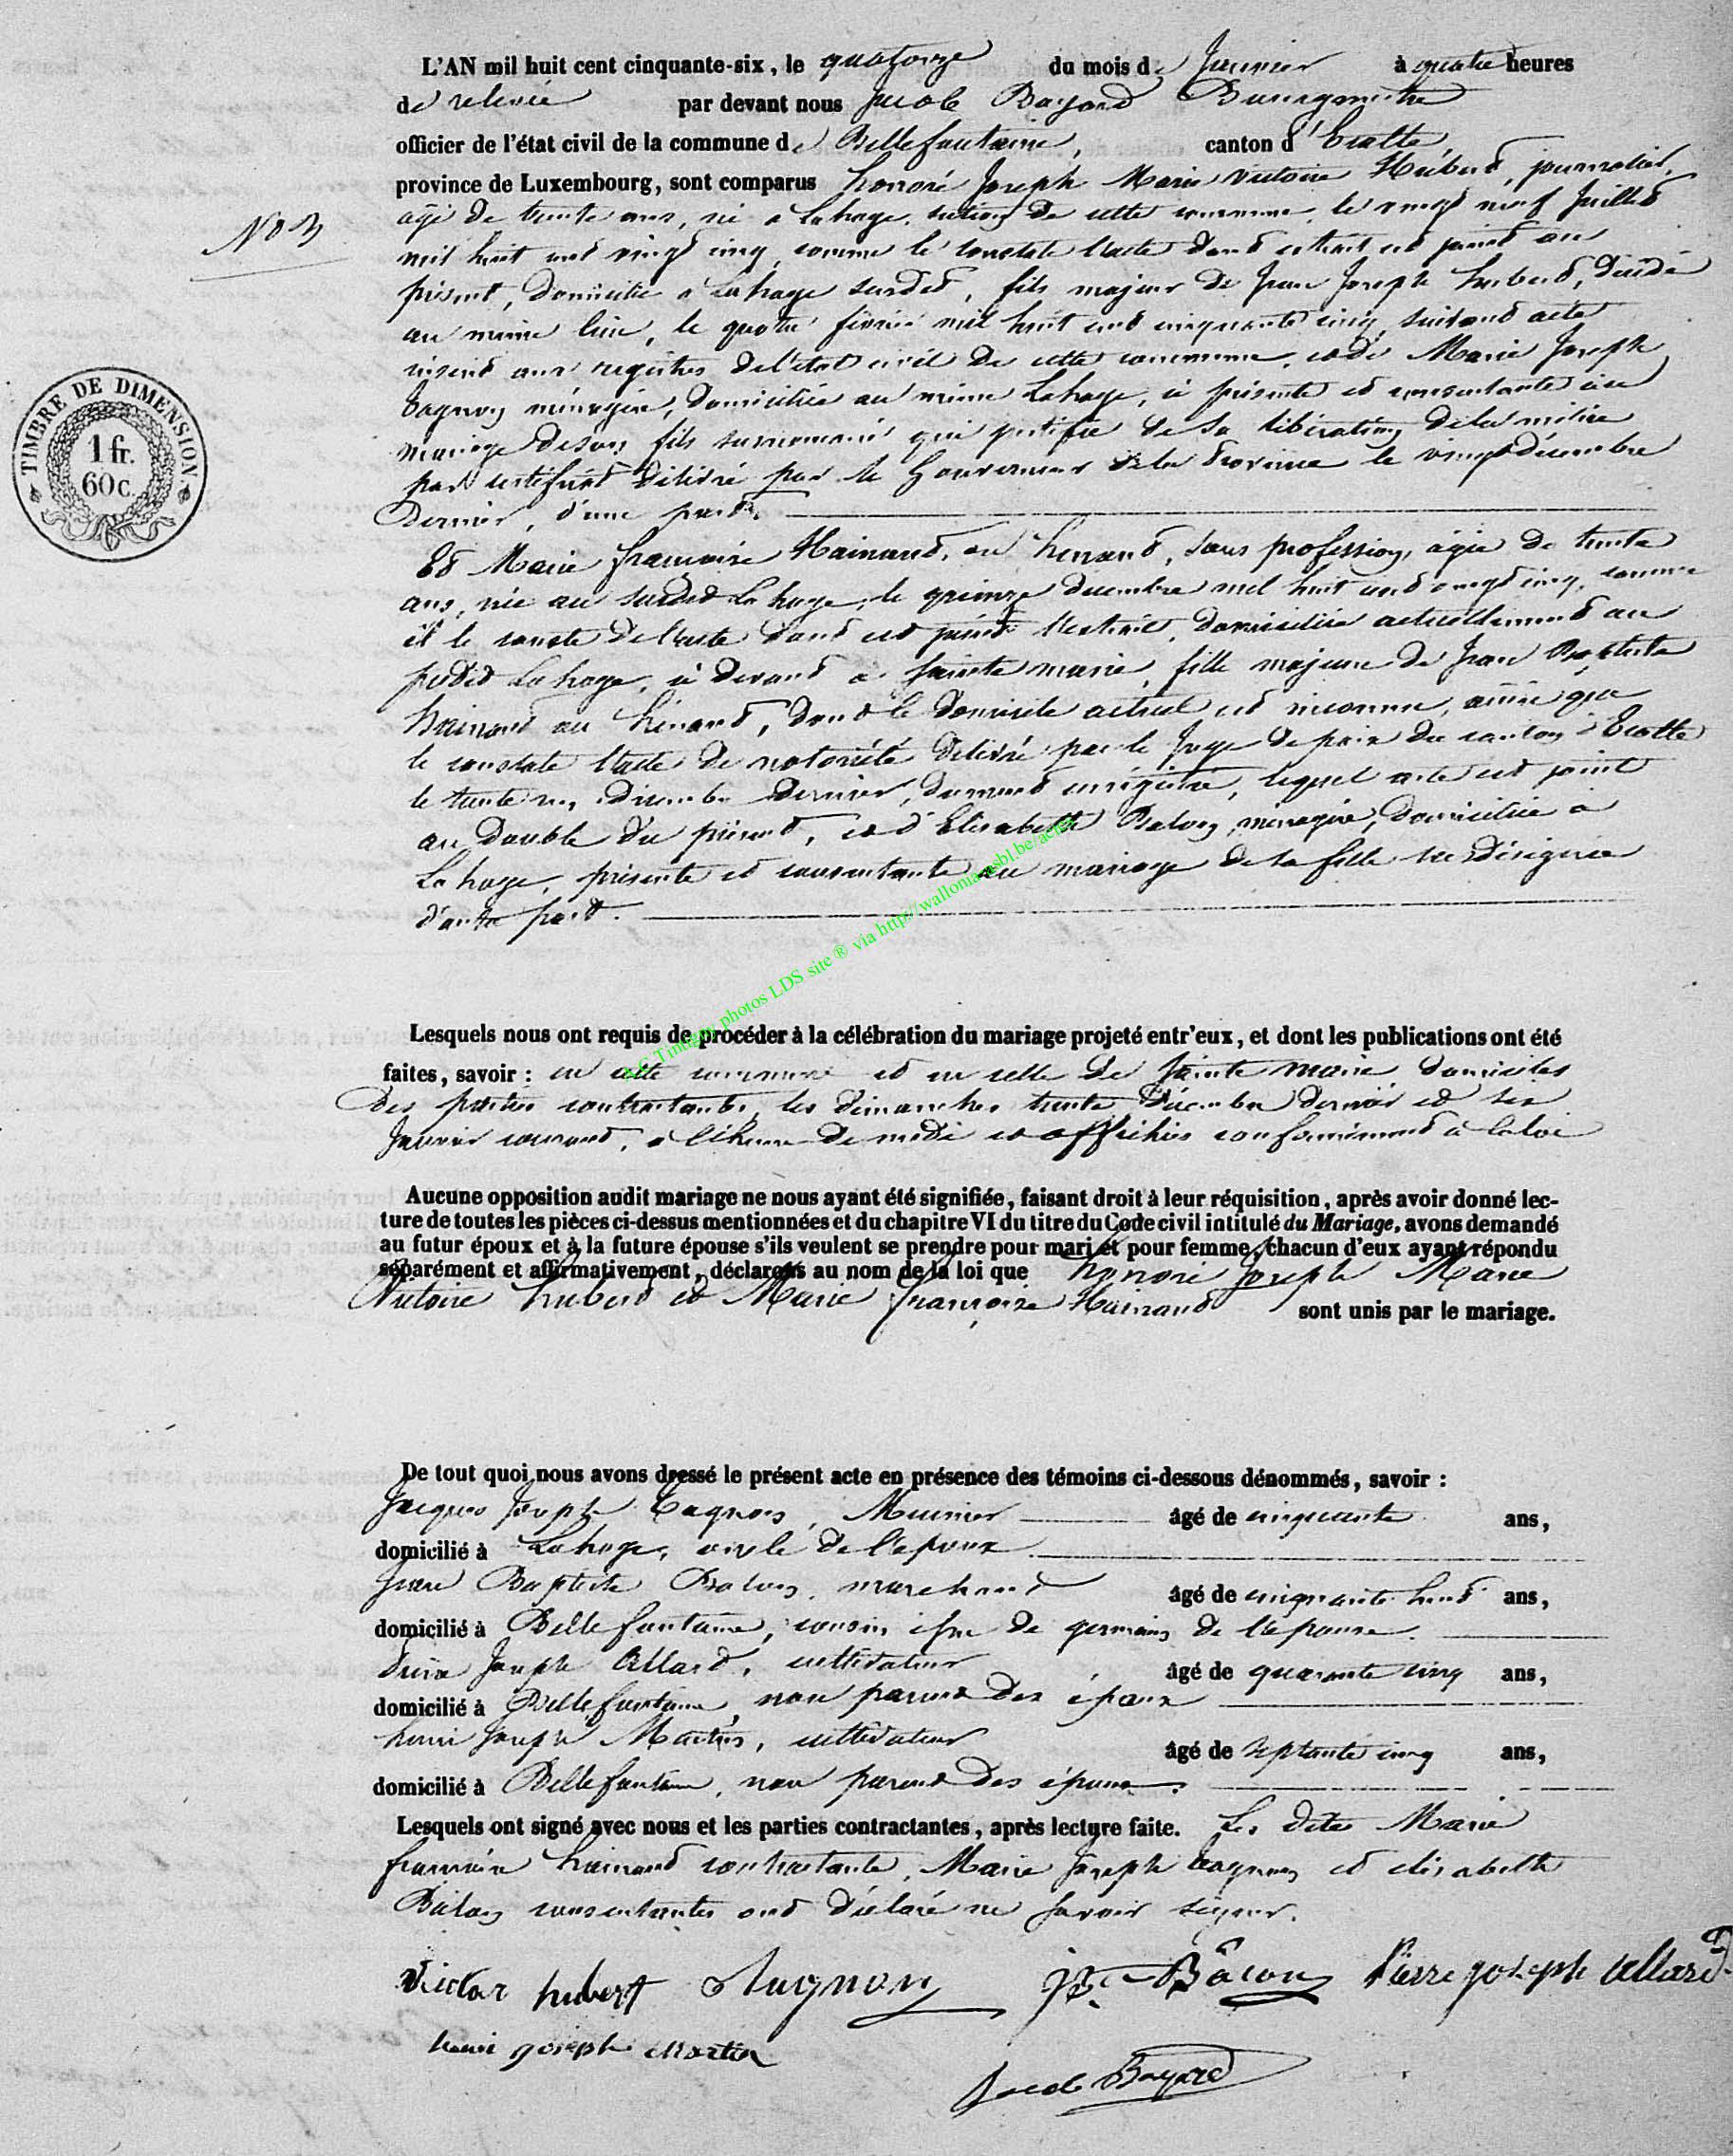 L'AN mil huit cent cinquante-six, le quatorze du mois de Janvier à quatre heures
de relevée par devant nous Jacob Bayard Bourgmestre
officier de l'état civil de la commune de Bellefontaine, canton d'Etalle,
province de Luxembourg, sont comparus honoré Joseph Marie Victoire Hubert, journalier,
âgé de trente ans, né a Lahage, section de cette commune, le vingt neuf Juillet
mil huit cent vingt cinq, comme le constate l'acte dont extrait est joint au
N° 3
présent, domicilié a Lahage susdit, fils majeur de Jean Joseph hubert, décédé
au même lieu, le quatre février mil huit cent cinquante cinq, suivant acte
inséré aux registres de l'état civil de cette commune, et de Marie Joseph
ménagère, domiciliée au même Lahage, ci présente et consentante au
mariage de son fils surnommé qui justifie de sa libération de la milice
par certificat délivré par le Gouverneur de la Province le vingt décembre
dernier, d'une part.
TIMBRE DE DIMENSION
1 fr.
60 c.
Et Marie françoise Hainand, ou henand, sans profession, âgée de trente
ans, née au susdit Lahage, le quinze decembre mil huit cent vingt cinq, comme
il le conste de l'acte dont est joint l'extrait, domiciliée actuellement au
predit Lahage, ci devant a Sainte marie, fille majeure de Jean Baptiste
hainand ou hénand, dont le domicile actuel est inconnu, ainsi que
le constate l'acte de notoriété délivré par le Juge de paix du canton d'Etalle
le trente un décembre dernier, dument enrégistré, lequel acte est joint
au double du présent, et d'Elisabeth ménagère, domiciliée à
Lahage, présente et consentante au mariage de sa fille susdésignée
d'autre part.
A.C Tintigny photos LDS site ® via http://wallonia-asbl.be/actes
Lesquels nous ont requis de procéder à la célébration du mariage projeté entr'eux, et dont les publications ont été
faites, savoir : en cette commune et en celle de Sainte marie domiciles
des parties contractantes, les dimanches trente décembre dernier et six
Janvier courant, a l'heure de midi et affichées conformément a la loi
Aucune opposition audit mariage ne nous ayant été signifiée, faisant droit à leur réquisition, après avoir donné lec-
ture de toutes les pièces ci-dessus mentionnées et du chapitre VI du titre du Code civil intitulé du Mariage, avons demandé
au futur époux et à la future épouse s'ils veulent se prendre pour mari et pour femme, chacun d'eux ayant répondu
séparément et affirmativement, déclarons au nom de la loi que honoré Joseph Marie
Victoire hubert et Marie françoise Hainand sont unis par le mariage.
De tout quoi nous avons dressé le présent acte en présence des témoins ci-dessous dénommés, savoir :
Jacques Joseph Meunier âgé de cinquante ans,
domicilié à Lahage, oncle de l'époux
Jean Baptiste marchand âgé de cinquante huit ans,
domicilié à Bellefontaine, cousin issu de germain de l'épouse.
Joseph Allard, cultivateur âgé de quarante cinq ans,
domicilié à Bellefontaine, non parent des époux
henri Joseph Martin, cultivateur âgé de septante cinq ans,
domicilié à Bellefontaine, non parent des époux.
Lesquels ont signé avec nous et les parties contractantes, après lecture faite. Les dites Marie
françoise hainand contractante, Marie Joseph et elisabeth
consentantes ont déclaré ne savoir signer.
Victor hubert JB Pierre joseph allard
henri joseph Martin
Jacob Bayard